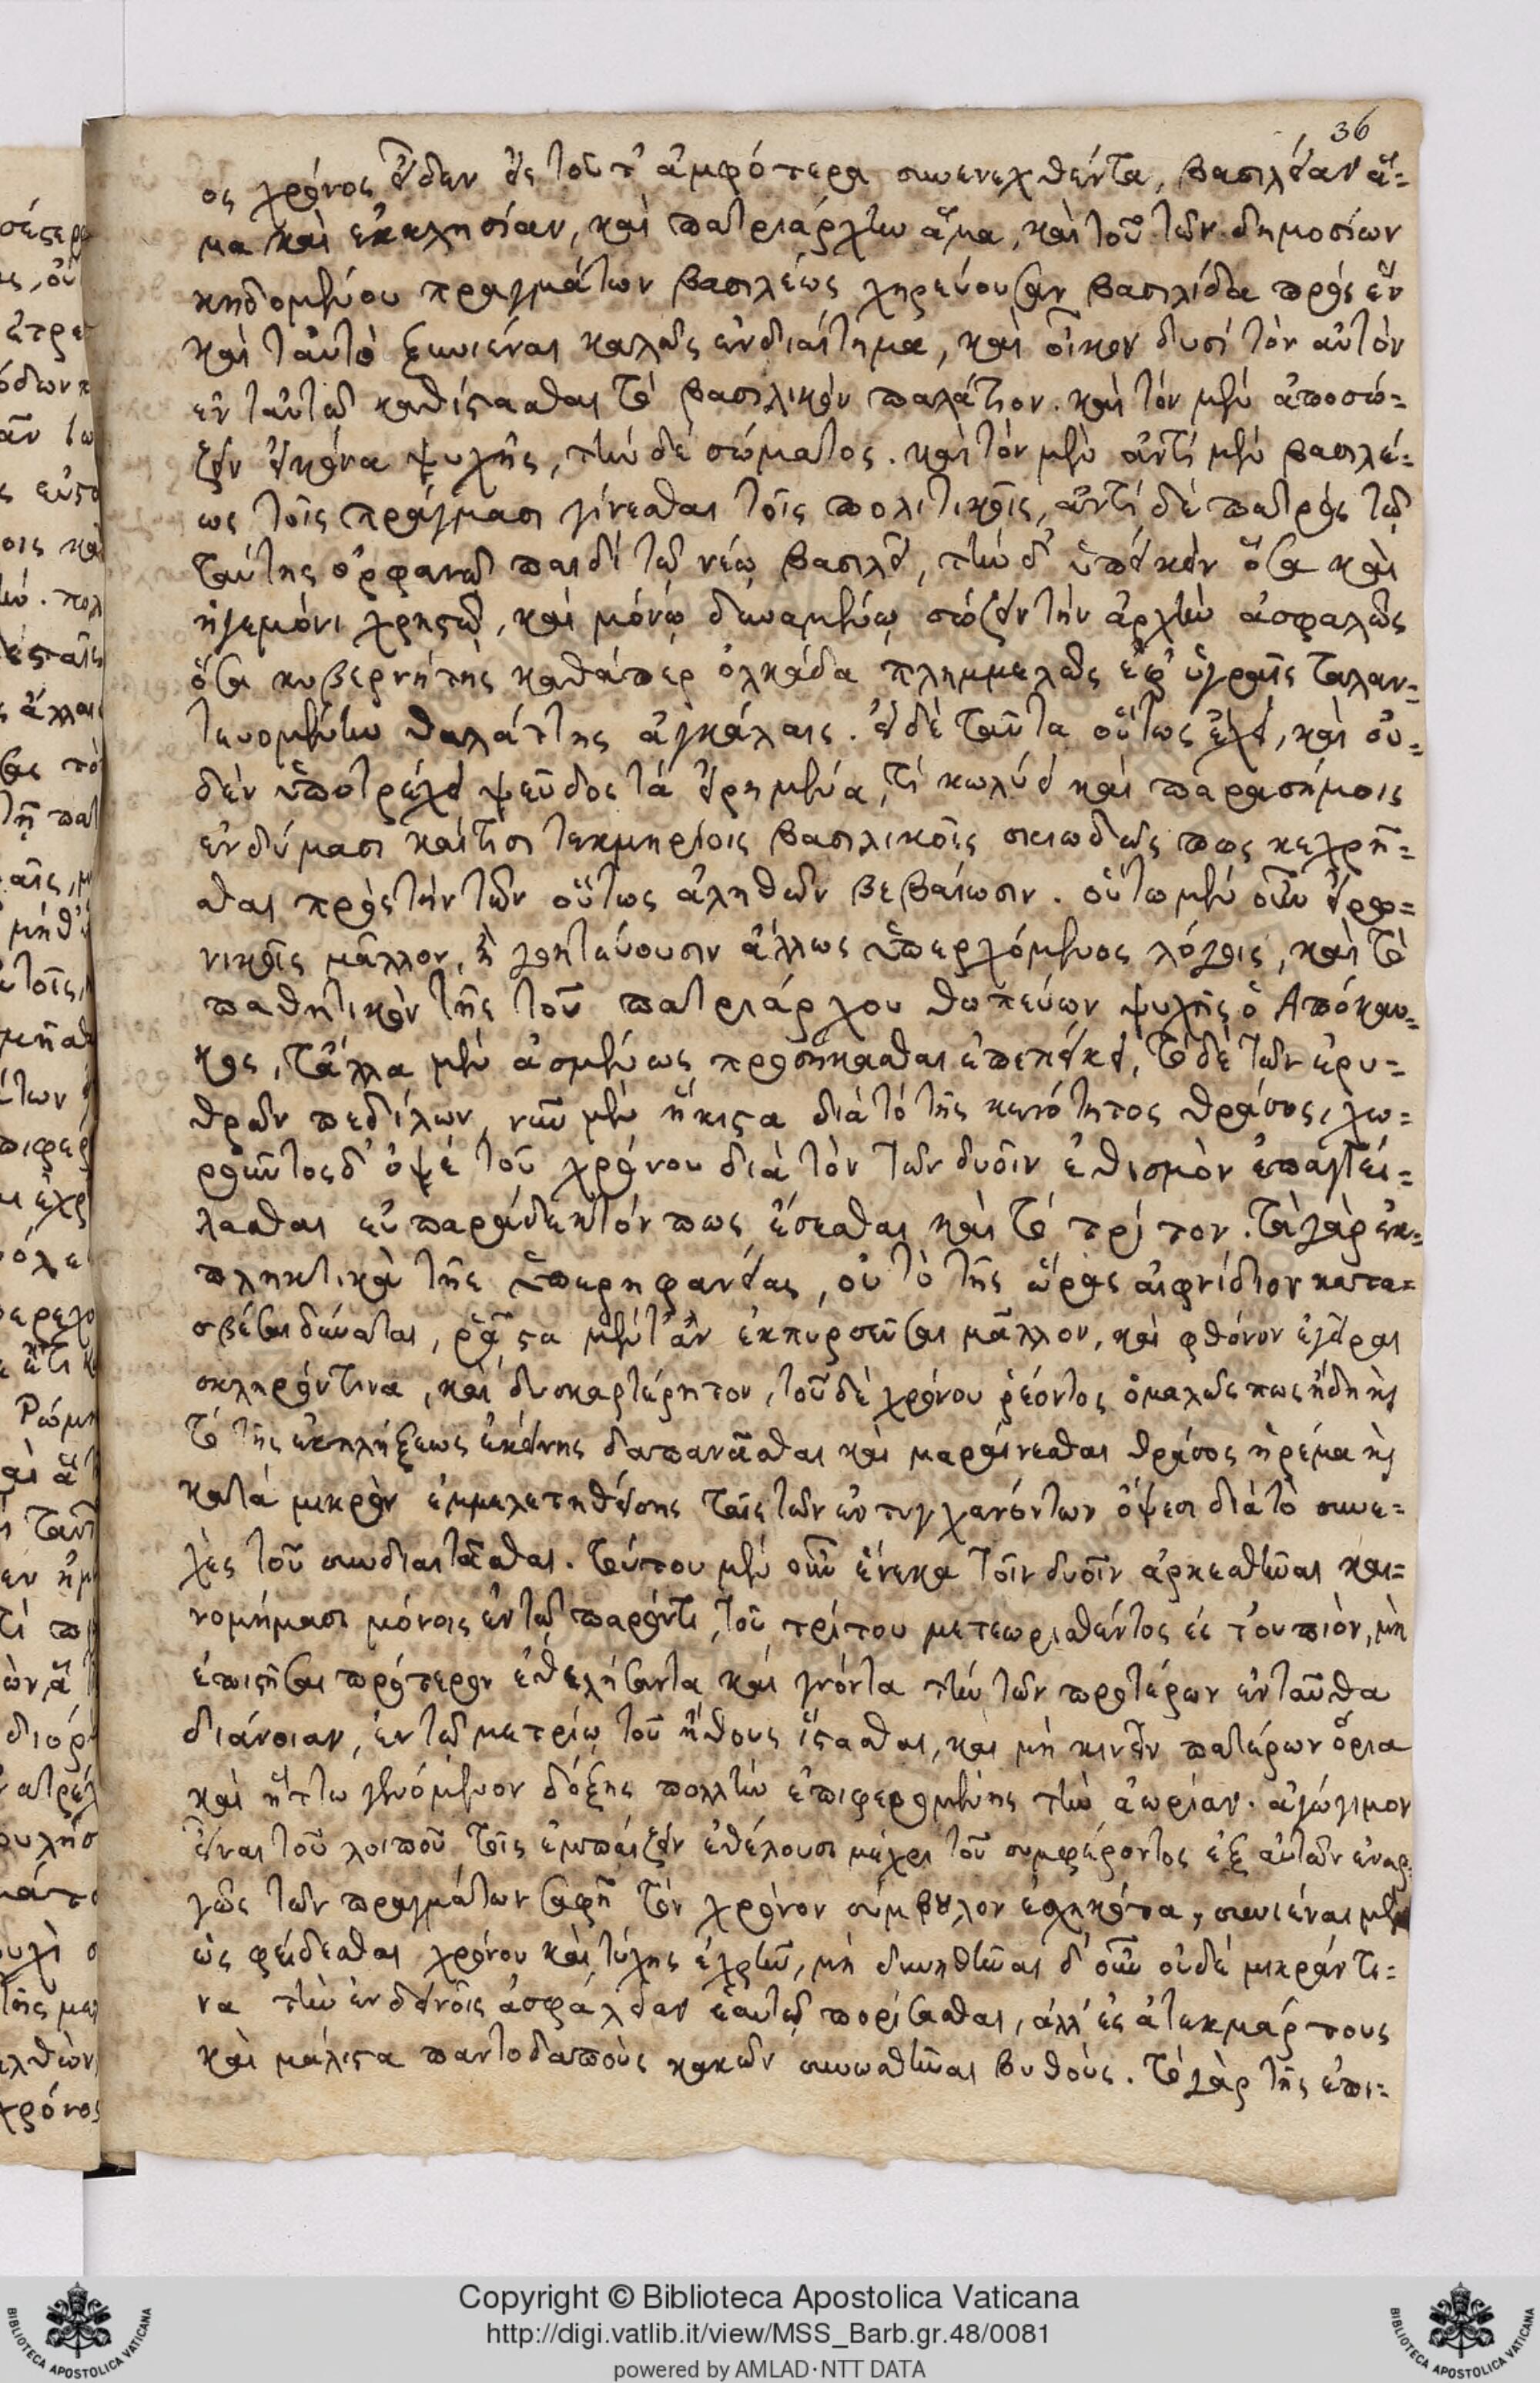 36
ος χρόνος εἶδεν εἰς τοῦτ' ἀμφότερα συνενεχθέντα, βασιλείαν ἅ-
μα καὶ ἐκκλησίαν, καὶ πατριάρχην ἅμα, καὶ τοῦ τῶν δημοσίων
κηδομένου πραγμάτων βασιλέως χηρεύουσαν βασιλίδα πρὸς ἓν
καὶ ταὐτὸ ξυνιέναι καλῶς ἐνδιαίτημα, καὶ οἶκον δυσὶ τὸν αὐτὸν
ἐν ταὐτῷ καθίστασθαι τὸ βασιλικὸν παλάτιον. καὶ τὸν μὲν ἀποσώ-
ζειν εἰκόνα ψυχῆς, τὴν δὲ σώματος. καὶ τὸν μὲν ἀντὶ μὲν βασιλέ-
ως τοῖς πράγμασι γίνεσθαι τοῖς πολιτικοῖς, ἀντὶ δὲ πατρὸς τῷ
ταύτης ὀρφανῷ παιδὶ τῷ νέῳ βασιλεῖ, τὴν δ' ὑπείκειν ὅσα καὶ
ἡγεμόνι χρηστῷ, καὶ μόνῳ δυναμένῳ σώζειν τὴν ἀρχὴν ἀσφαλῶς
ὅσα κυβερνήτης καθάπερ ὁλκάδα πλημμελῶς ἐφ' ὑγραῖς ταλαν-
τευομένην θαλάττης ἀγκάλαις. εἰ δὲ ταῦτα οὕτως ἔχει, καὶ οὐ-
δὲν ὑποτρέχει ψεῦδος τὰ εἰρημένα, τί κωλύει καὶ παρασήμοις
ἐνδύμασι καί τισι τεκμηρίοις βασιλικοῖς σκιωδῶς πως κεχρῆ-
σθαι πρὸς τὴν τῶν οὕτως ἀληθῶν βεβαίωσιν. οὕτω μὲν οὖν εἰρω-
νικοῖς μᾶλλον, ἢ γοητεύουσιν ἄλλως ὑπερχόμενος λόγοις, καὶ τὸ
παθητικὸν τῆς τοῦ πατριάρχου θωπεύων ψυχῆς ὁ Ἀπόκαυ-
κος, τἆλλα μὲν ἀσμένως προσήκασθαι ἐπεπείκει, τὸ δὲ τῶν ἐρυ-
θρῶν πεδίλων, νῦν μὲν ἥκιστα διὰ τὸ τῆς καινότητος θράσος, χω-
ροῦντος δ' ὀψὲ τοῦ χρόνου διὰ τὸν τῶν δυοῖν ἐθισμὸν ἐπαγγεί-
λασθαι εὐπαράδεκτόν πως ἔσεσθαι καὶ τὸ τρίτον. τὰ γὰρ ἐκ-
πληκτικὰ τῆς ὑπερηφανείας, οὐ τὸ τῆς ὥρας αἰφνίδιον κατα-
σβέσαι δύναται, ῥᾷστα μέντ' ἂν ἐκπυρσεῦσαι μᾶλλον, καὶ φθόνον ἐγεῖραι
σκληρόν τινα, καὶ δυσκαρτέρητον, τοῦ δὲ χρόνου ῥέοντος ὁμαλῶς πως ἤδη καὶ
τὸ τῆς ἐκπλήξεως ἐκείνης δαπανᾶσθαι καὶ μαραίνεσθαι θράσος ἠρέμα καὶ
κατὰ μικρὸν ἐμμελετηθείσης ταῖς τῶν ἐντυγχανόντων ὄψεσι διὰ τὸ συνε-
χὲς τοῦ συνδιαιτᾶσθαι. τούτου μὲν οὖν ἕνεκα τοῖν δυοῖν ἀρκεσθῆναι και-
νομήμασι μόνοις ἐν τῷ παρόντι, τοῦ τρίτου μετεωρισθέντος ἐς τοὐπιὸν, μὴ
ἐπιστῆσαι πρότερον ἐθελήσαντα καὶ γνόντα τὴν τῶν προτέρων ἐνταῦθα
διάνοιαν, ἐν τῷ μετρίῳ τοῦ ἤθους ἵστασθαι, καὶ μὴ κινεῖν πατέρων ὅρια
καὶ ἥττω γενόμενον δόξης πολλὴν ἐπιφερομένης τὴν ἀωρίαν. ἀγώγιμον
εἶναι τοῦ λοιποῦ τοῖς ἐμπαίζειν ἐθέλουσι μέχρι τοῦ συμφέροντος ἐξ αὐτῶν ἐναρ-
γῶς τῶν πραγμάτων σαφῆ τὸν χρόνον σύμβουλον εἰληκότα, συνιέναι μὲν
ὡς φείδεσθαι χρόνου καὶ τύχης ἐχρῆν, μὴ δυνηθῆναι δ' οὖν οὐδὲ μικράν τι-
να τὴν ἐν δεινοῖς ἀσφάλειαν ἑαυτῷ πορίσασθαι, ἀλλ' ἐς ἀτεκμάρτους
καὶ μάλιστα παντοδαποὺς κακῶν συνωσθῆναι βυθούς. τὸ γὰρ τῆς ἐπι-
Copyright © Biblioteca Apostolica Vaticana
http://digi.vatlib.it/view/MSS_Barb.gr.48/0081
powered by AMLAD·NTT DATA
BIBLIOTECA APOSTOLICA VATICANA
BIBLIOTECA APOSTOLICA VATICANA